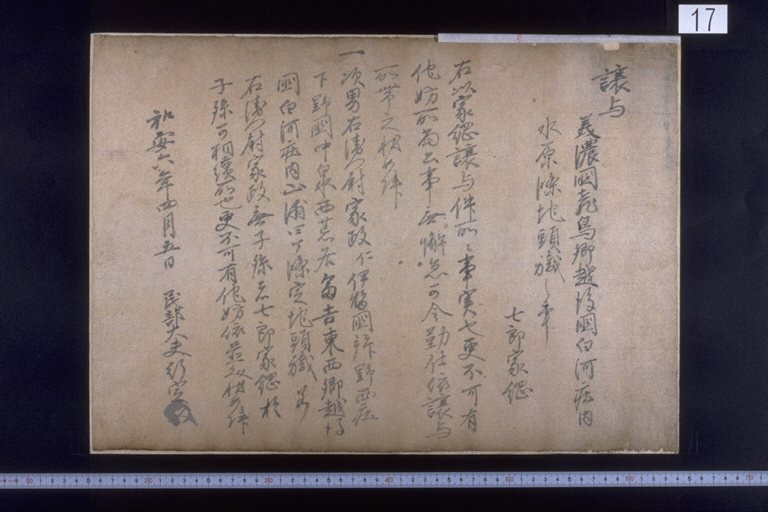 譲与
美濃国 鳥郷越後国白河庄内
水原条地頭職之事
七郎家綱
右以家綱譲与件所々事実也更不可有
他妨所 公事無懈怠可令勤仕依譲与
所帯之状如件
一次男右衛門尉家政仁伊勢国 野西庄
下野国中泉西荘 富吉東西郷越後
国白河庄内山浦四ヶ条定地頭職 若
右衛門尉家政無子孫者七郎家綱 於
子孫可相続所也更不可有他妨依 状如件
和 六年四月五日 民部大夫行定
17